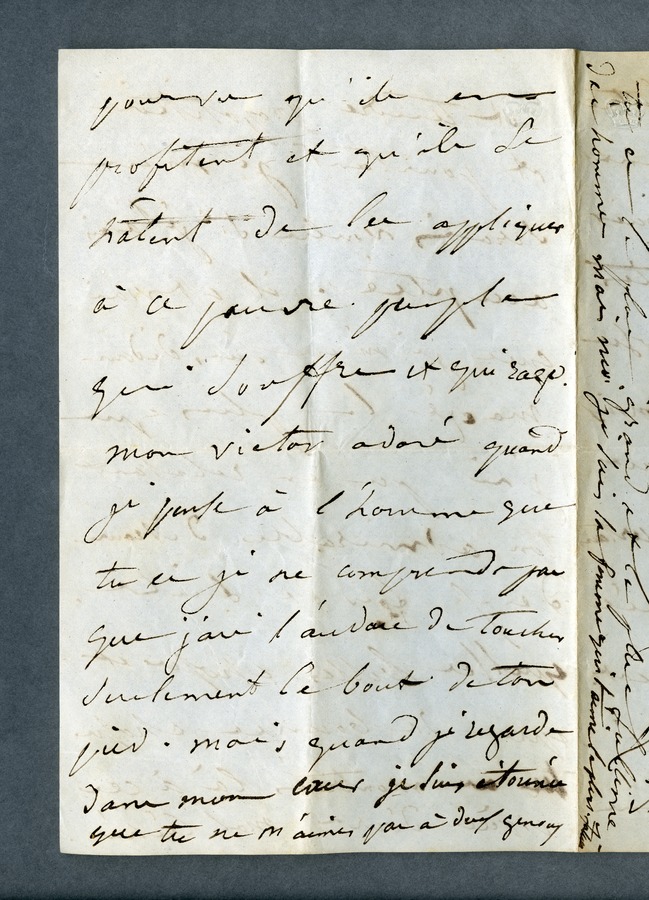 pourvu qu'ils en
profitent et qu'ils se
hâtent de les appliquer
à ce pauvre peuple
qui souffre et qui
mon victor adoré quand
je pense à l'homme que
tu es je ne comprends pas
que j'aie l'audace de toucher
seulement le bout de ton
pied. mais quand je regarde
dans mon cœur je suis étonnée
que tu ne m'aimes pas à deux genoux
tu es le plus grand et le plus sublime
des hommes mais moi je suis la femme qui t'aime le plus